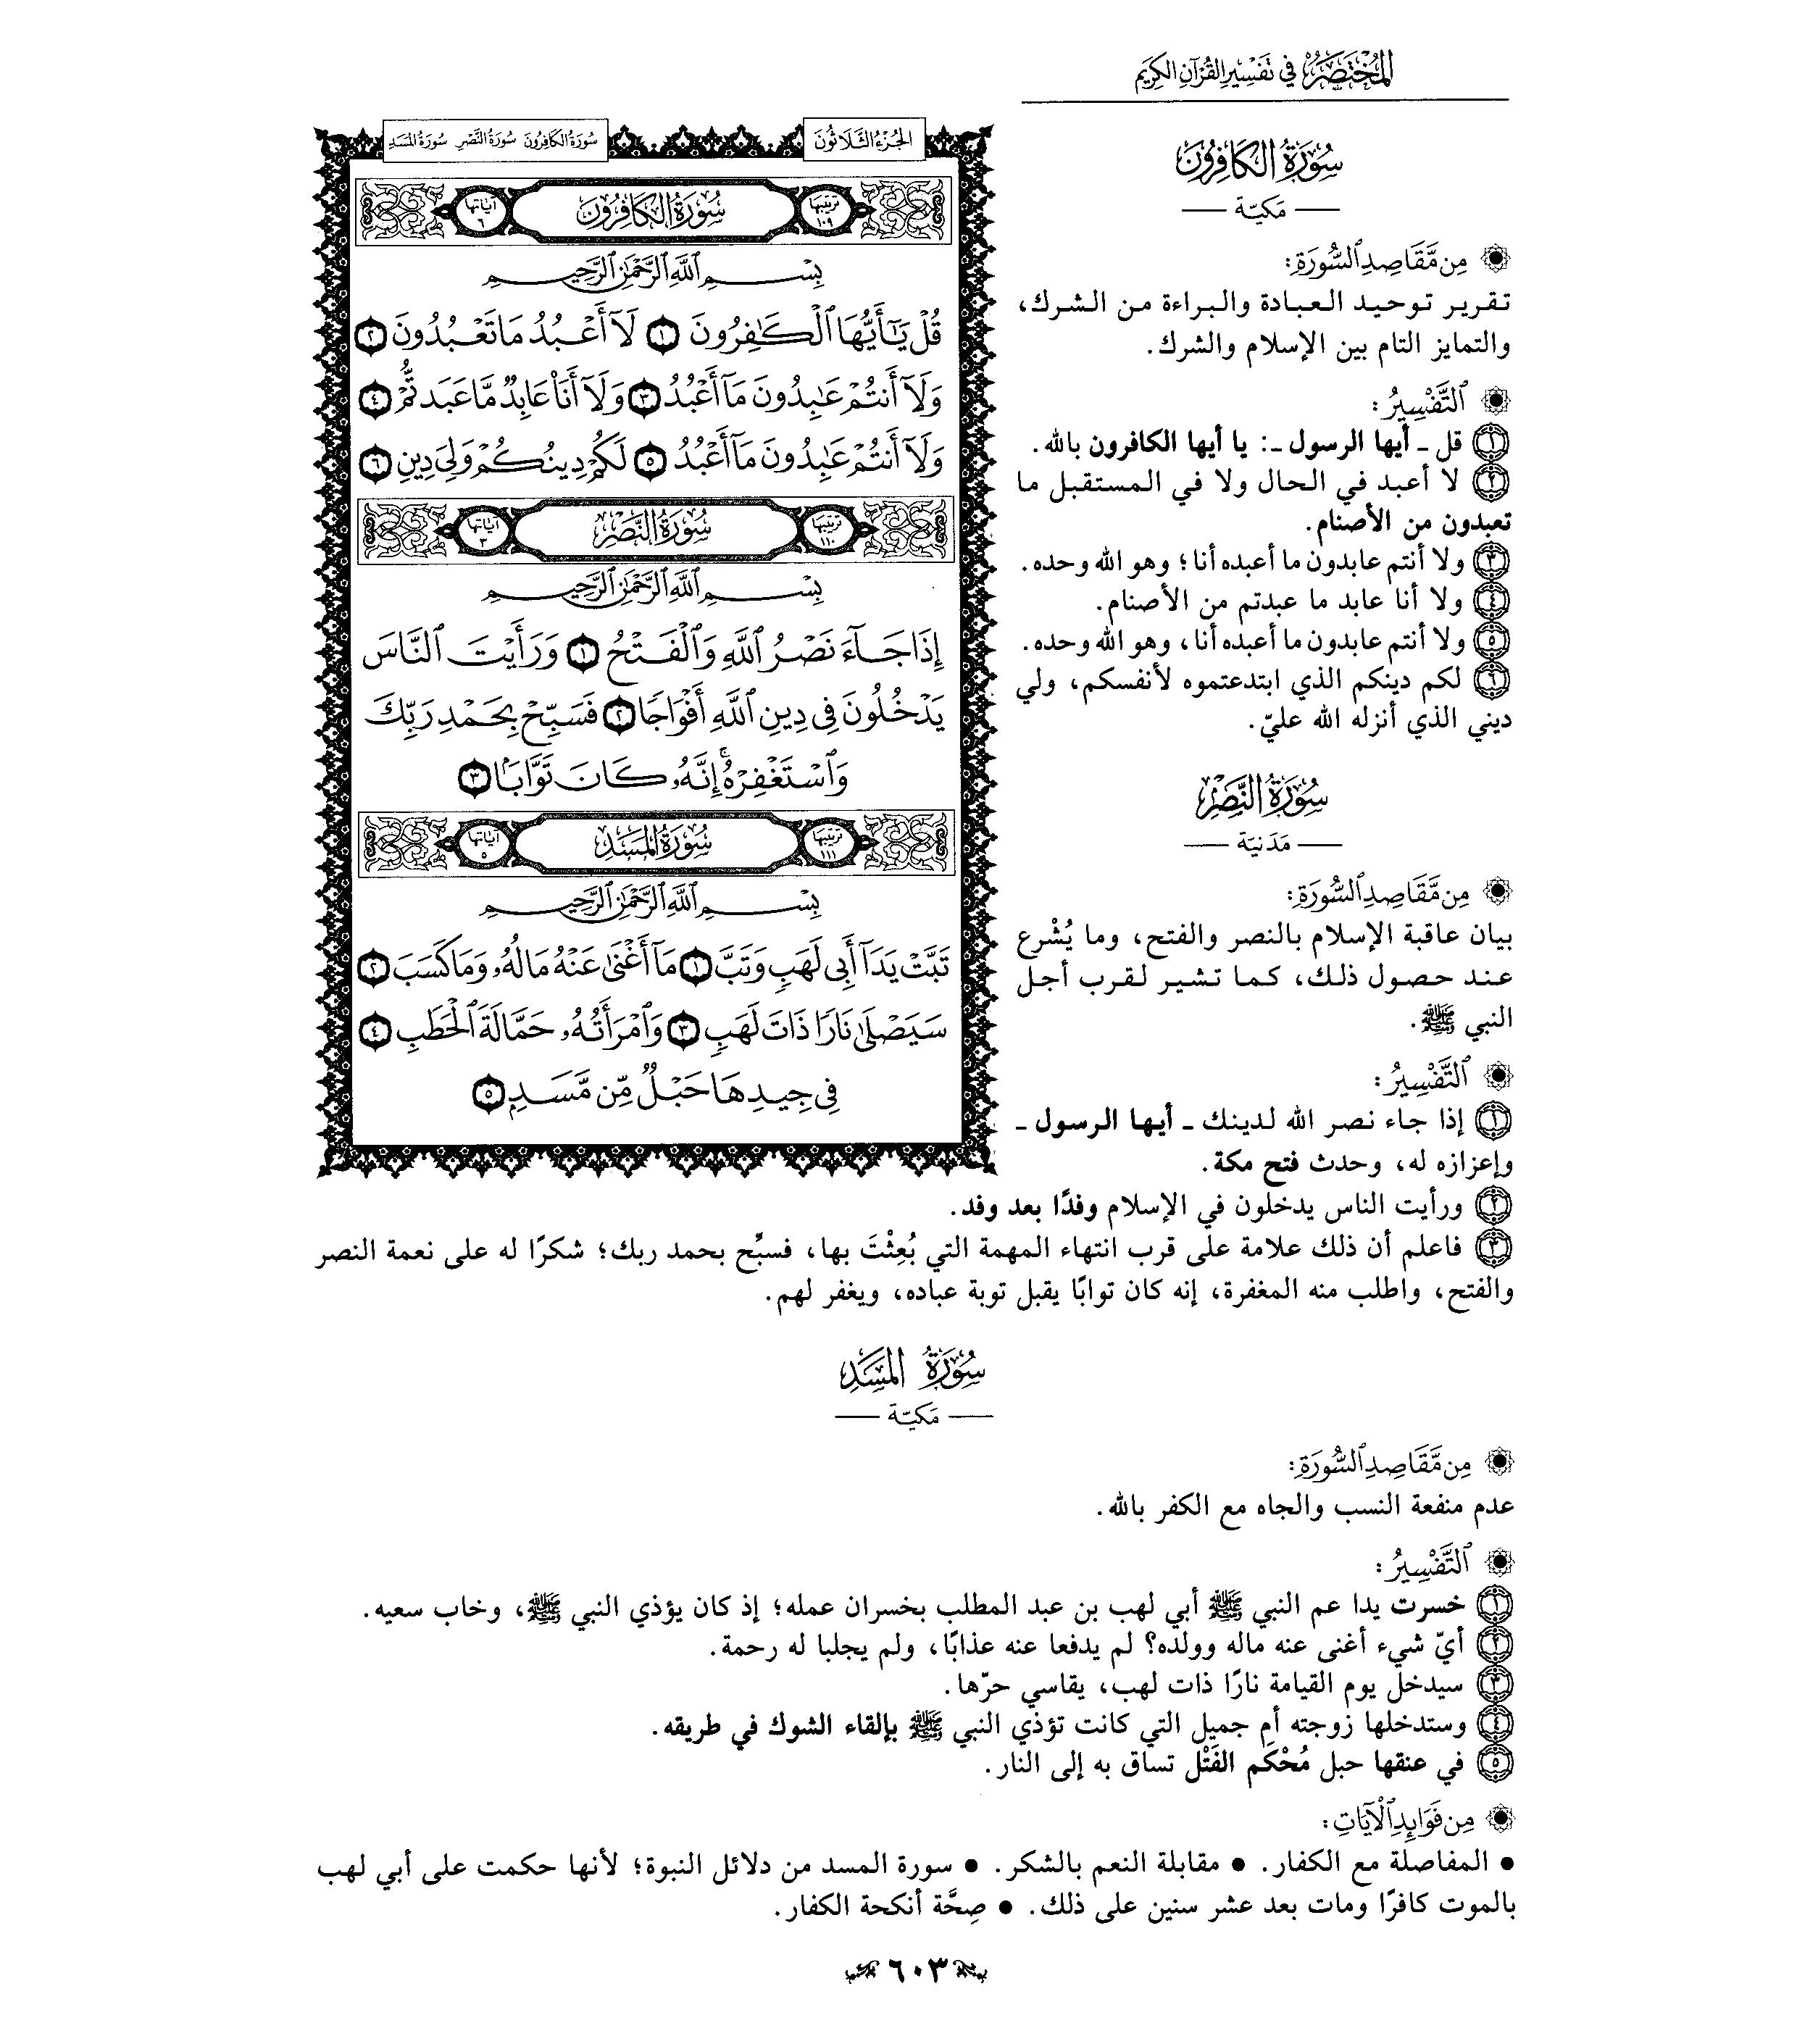 المُخْتَصَرُ في تَفْسِيرِ القُرْآنِ الكَرِيمِ
الجُزْءُ الثَّلَاثُونَ
سُورَةُ الكَافِرُونَ سُورَةُ النَّصْرِ سُورَةُ المَسَدِ
ترتيبها ١٠٩
سُورَةُ الكَافِرُونَ
آياتها ٦
بِسْمِ ٱللَّهِ ٱلرَّحْمَٰنِ ٱلرَّحِيمِ
قُلْ يَٰٓأَيُّهَا ٱلْكَٰفِرُونَ ١ لَآ أَعْبُدُ مَا تَعْبُدُونَ ٢
وَلَآ أَنتُمْ عَٰبِدُونَ مَآ أَعْبُدُ ٣ وَلَآ أَنَا۠ عَابِدٌ مَّا عَبَدتُّمْ ٤
وَلَآ أَنتُمْ عَٰبِدُونَ مَآ أَعْبُدُ ٥ لَكُمْ دِينُكُمْ وَلِيَ دِينِ ٦
ترتيبها ١١٠
سُورَةُ النَّصْرِ
آياتها ٣
بِسْمِ ٱللَّهِ ٱلرَّحْمَٰنِ ٱلرَّحِيمِ
إِذَا جَآءَ نَصْرُ ٱللَّهِ وَٱلْفَتْحُ ١ وَرَأَيْتَ ٱلنَّاسَ
يَدْخُلُونَ فِي دِينِ ٱللَّهِ أَفْوَاجًا ٢ فَسَبِّحْ بِحَمْدِ رَبِّكَ
وَٱسْتَغْفِرْهُ ۚ إِنَّهُۥ كَانَ تَوَّابًۢا ٣
ترتيبها ١١١
سُورَةُ المَسَدِ
آياتها ٥
بِسْمِ ٱللَّهِ ٱلرَّحْمَٰنِ ٱلرَّحِيمِ
تَبَّتْ يَدَآ أَبِي لَهَبٍ وَتَبَّ ١ مَآ أَغْنَىٰ عَنْهُ مَالُهُۥ وَمَا كَسَبَ ٢
سَيَصْلَىٰ نَارًا ذَاتَ لَهَبٍ ٣ وَٱمْرَأَتُهُۥ حَمَّالَةَ ٱلْحَطَبِ ٤
فِي جِيدِهَا حَبْلٌ مِّن مَّسَدٍۭ ٥
سُورَةُ الكَافِرُونَ
— مَكيّة —
مِن مَّقَاصِدِ ٱلسُّورَةِ:
تقرير توحيد العبادة والبراءة من الشرك،
والتمايز التام بين الإسلام والشرك.
ٱلتَّفْسِيرُ:
١ قل ـ أيها الرسول ـ: يا أيها الكافرون بالله.
٢ لا أعبد في الحال ولا في المستقبل ما
تعبدون من الأصنام.
٣ ولا أنتم عابدون ما أعبده أنا؛ وهو الله وحده.
٤ ولا أنا عابد ما عبدتم من الأصنام.
٥ ولا أنتم عابدون ما أعبده أنا، وهو الله وحده.
٦ لكم دينكم الذي ابتدعتموه لأنفسكم، ولي
ديني الذي أنزله الله عليّ.
سُورَةُ النَّصْرِ
— مَدَنيّة —
مِن مَّقَاصِدِ ٱلسُّورَةِ:
بيان عاقبة الإسلام بالنصر والفتح، وما يُشْرع
عند حصول ذلك، كما تشير لقرب أجل
النبي ﷺ.
ٱلتَّفْسِيرُ:
١ إذا جاء نصر الله لدينك ـ أيها الرسول ـ
وإعزازه له، وحدث فتح مكة.
٢ ورأيت الناس يدخلون في الإسلام وفدًا بعد وفد.
٣ فاعلم أن ذلك علامة على قرب انتهاء المهمة التي بُعِثْتَ بها، فسبِّح بحمد ربك؛ شكرًا له على نعمة النصر
والفتح، واطلب منه المغفرة، إنه كان توابًا يقبل توبة عباده، ويغفر لهم.
سُورَةُ المَسَدِ
— مَكيّة —
مِن مَّقَاصِدِ ٱلسُّورَةِ:
عدم منفعة النسب والجاه مع الكفر بالله.
ٱلتَّفْسِيرُ:
١ خسرت يدا عم النبي ﷺ أبي لهب بن عبد المطلب بخسران عمله؛ إذ كان يؤذي النبي ﷺ، وخاب سعيه.
٢ أيّ شيء أغنى عنه ماله وولده؟ لم يدفعا عنه عذابًا، ولم يجلبا له رحمة.
٣ سيدخل يوم القيامة نارًا ذات لهب، يقاسي حرّها.
٤ وستدخلها زوجته أم جميل التي كانت تؤذي النبي ﷺ بإلقاء الشوك في طريقه.
٥ في عنقها حبل مُحْكَم الفَتْل تساق به إلى النار.
مِن فَوَائِدِ ٱلْآيَاتِ:
● المفاصلة مع الكفار. ● مقابلة النعم بالشكر. ● سورة المسد من دلائل النبوة؛ لأنها حكمت على أبي لهب
بالموت كافرًا ومات بعد عشر سنين على ذلك. ● صِحَّة أنكحة الكفار.
٦٠٣